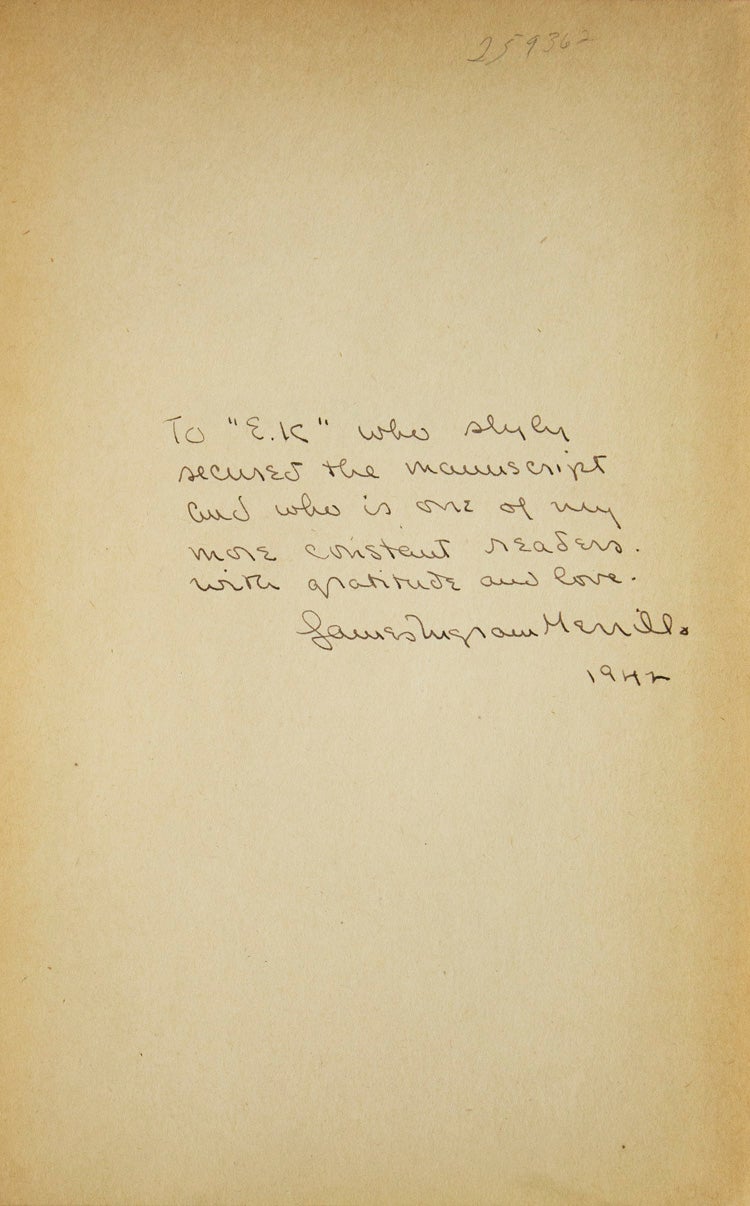 259362
To "E.K" who slyly
secured the manuscript
and who is one of my
more constant readers.
with gratitude and love.
James Ingram Merrill.
1942